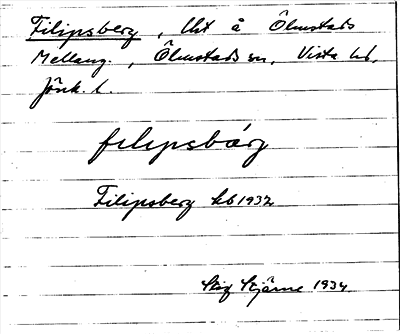 Filipsberg, lht å Ölmstads
Mellang., Ölmstads sn, Vista hd,
Jönk. l.
filipsbárg
Filipsberg kb 1932
Stig Stjärne 1934